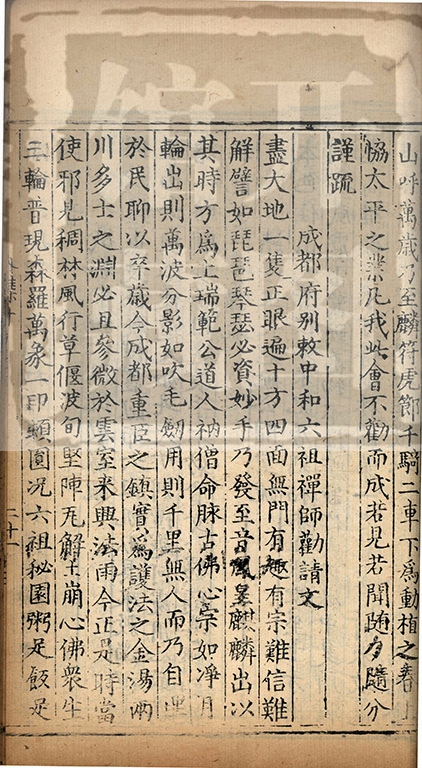 山呼萬歲乃至麟符虎節千騎二車下爲動植之春上
恊太平之業凡我此會不勸而成若見若聞随力隨分
謹疏
成都府別敕中和六祖禪師勸請文
盡大地一隻正眼遍十方四面無門有趣有宗難信難
解譬如琵琶琴瑟必資妙手乃發至音鳳凰麒麟出以
其時方爲上瑞範公道人衲僧命脉古佛心宗如淨月
輪出則萬波分影如吹毛劒用則千里無人而乃自
於民聊以卒歲今成都重臣之鎮實爲護法之金湯兩
川多士之淵必且參微於雲室来興法雨今正是時當
使邪見稠林風行草偃波旬堅陣瓦解土崩心佛衆生
三輪普現森羅萬象一印頓圓況六祖挑園粥足飯足
二十